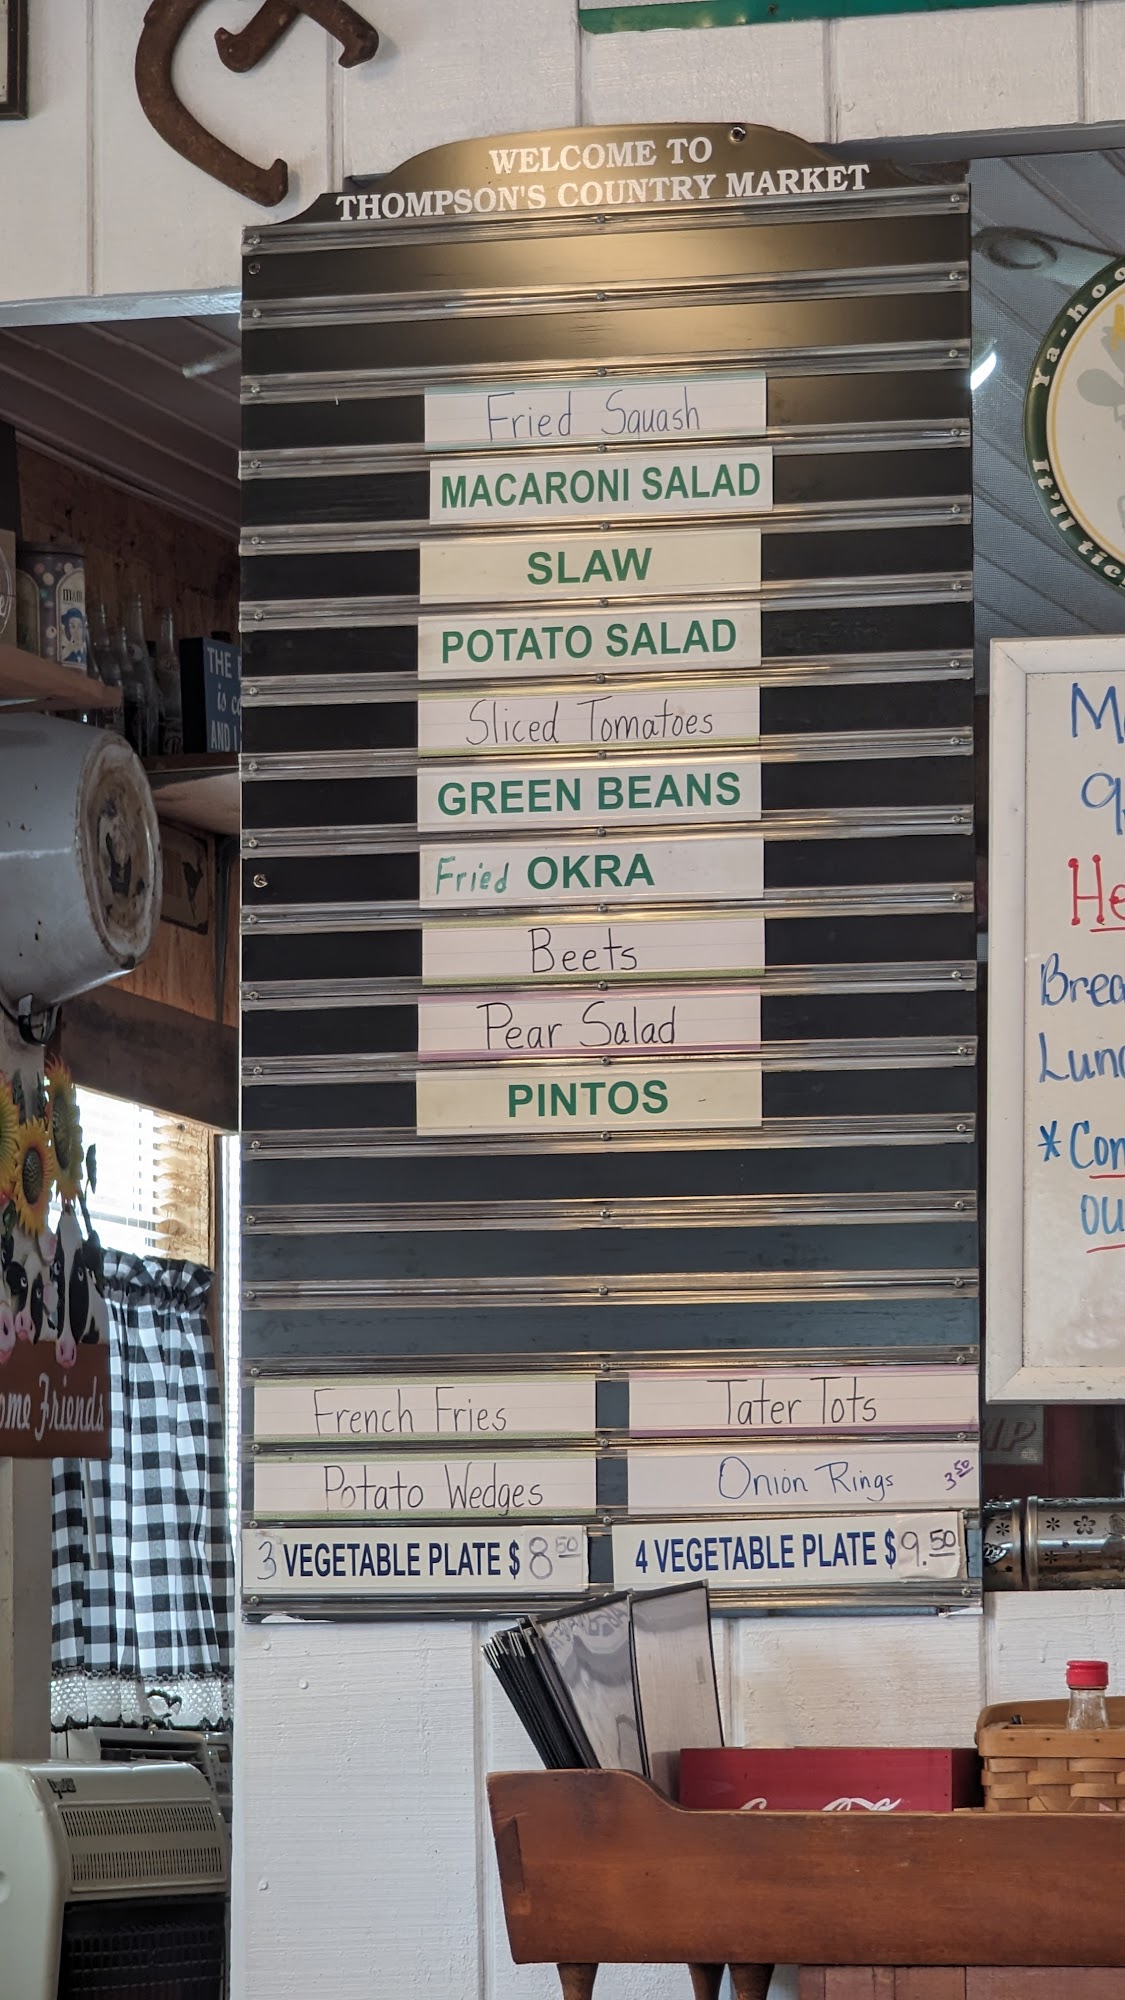 WELCOME TO
THOMPSON'S COUNTRY MARKET
Fried Squash
MACARONI SALAD
SLAW
POTATO SALAD
Sliced Tomatoes
GREEN BEANS
Fried OKRA
Beets
Pear Salad
PINTOS
French Fries
Tater Tots
Potato Wedges
Onion Rings 3.50
3 VEGETABLE PLATE $ 8.50
4 VEGETABLE PLATE $ 9.50
Ya-hoo
It'll tic
THE
is
AND
Friends